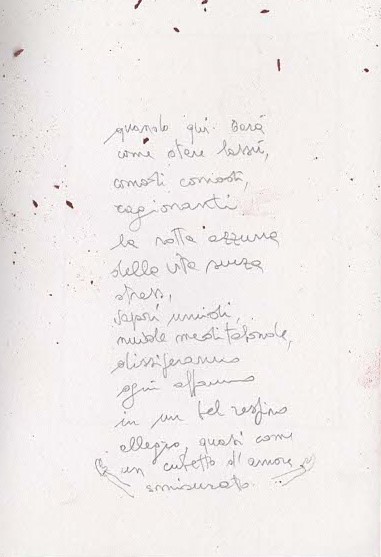 quando qui sarà
come stare lassù,
comodi comodi,
ragionanti
la rotta azzurra
della vita senza
stress,
vapori umidi,
nuvole meditabonde,
dissiperanno
ogni affanno
in un bel respiro
allegro, quasi come
un cubetto d'amore
smisurato.